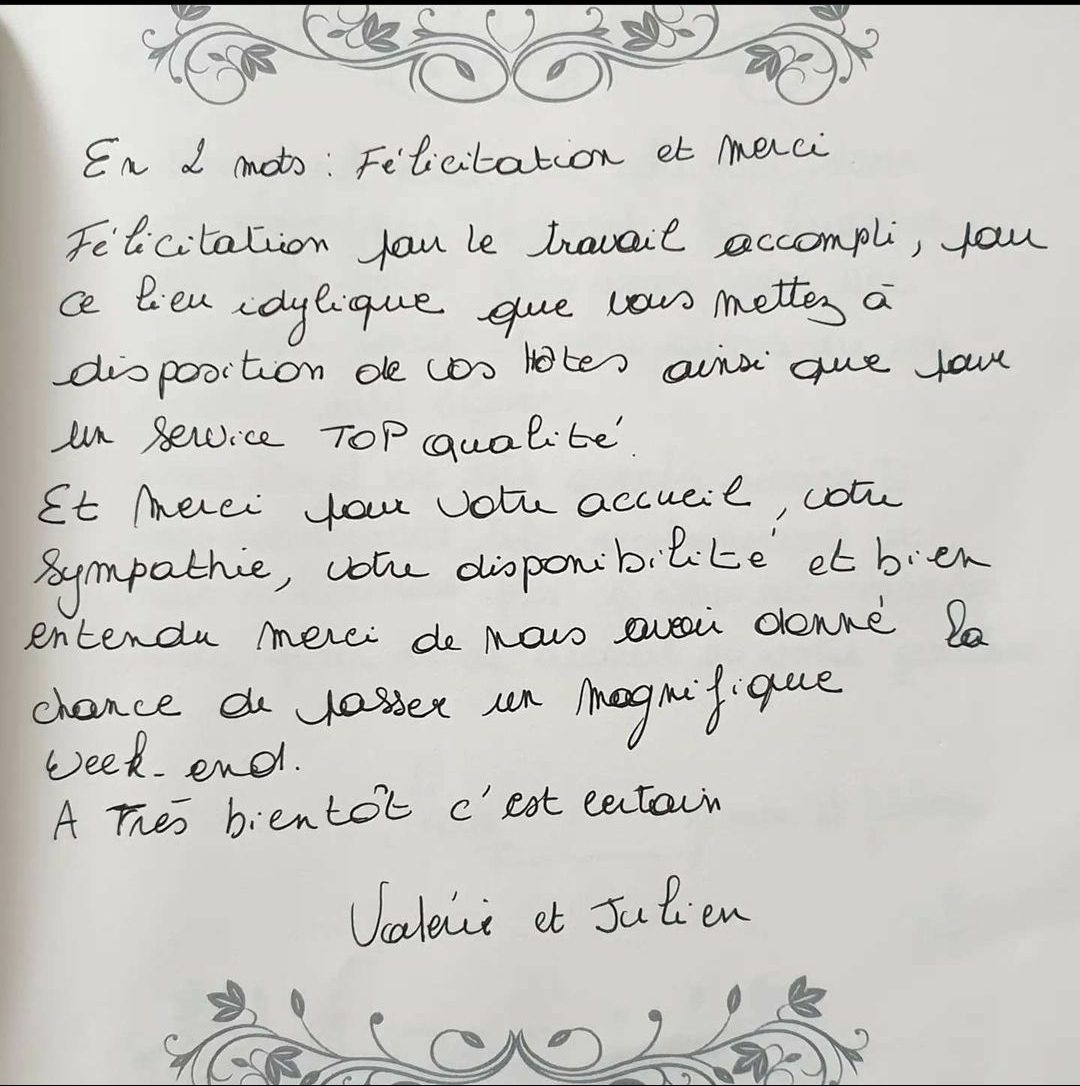 En 2 mots : Félicitation et merci
Félicitation pour le travail accompli, pour
ce lieu idylique que vous mettez à
disposition de vos Hôtes ainsi que pour
un service TOP qualité.
Et merci pour votre accueil, votre
sympathie, votre disponibilité et bien
entendu merci de nous avoir donné la
chance de passer un magnifique
week-end.
A Très bientôt c'est certain
Valérie et Julien